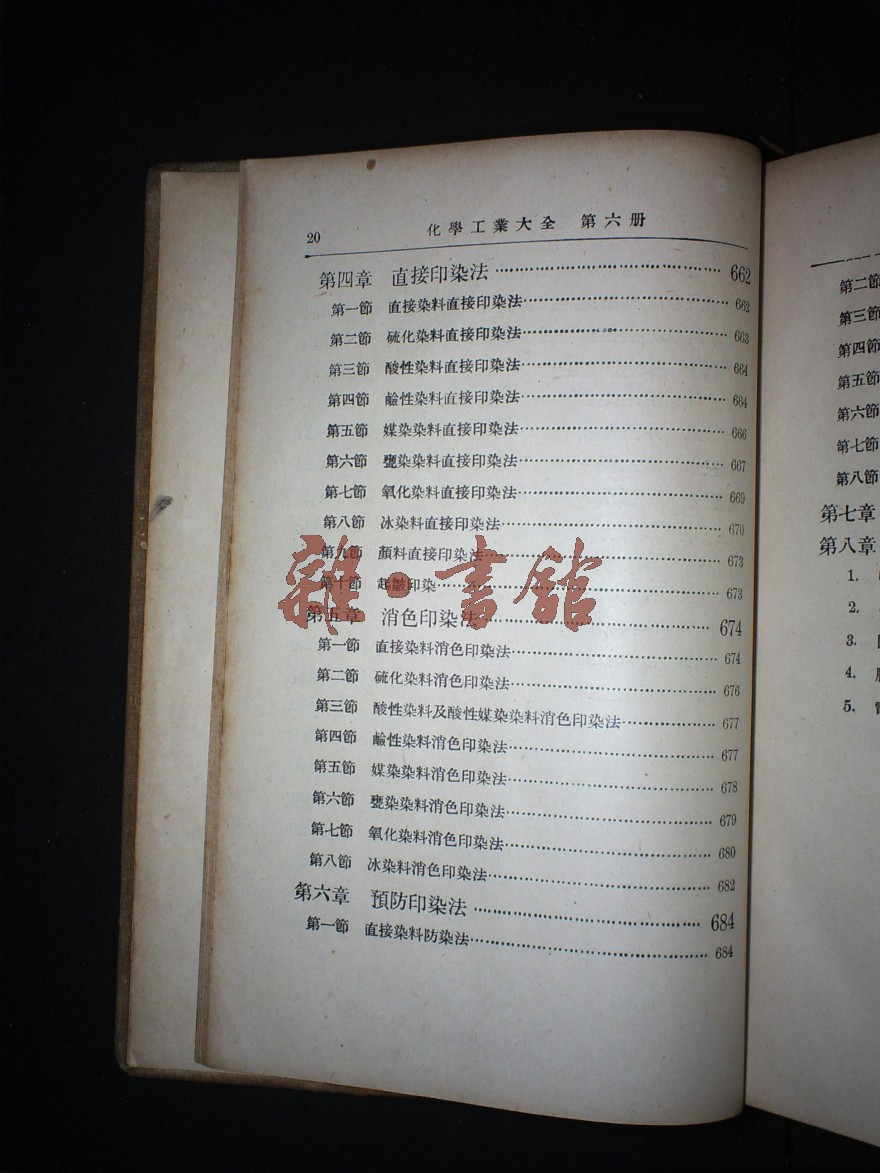 20 化學工業大全 第六册
第四章 直接印染法 662
第一節 直接染料直接印染法 662
第二節 硫化染料直接印染法 663
第三節 酸性染料直接印染法 664
第四節 鹼性染料直接印染法 664
第五節 媒染染料直接印染法 666
第六節 甕染染料直接印染法 667
第七節 氧化染料直接印染法 669
第八節 冰染料直接印染法 670
第九節 顏料直接印染法 673
第十節 起皺印染 673
第五章 消色印染法 674
第一節 直接染料消色印染法 674
第二節 硫化染料消色印染法 676
第三節 酸性染料及酸性媒染染料消色印染法 677
第四節 鹼性染料消色印染法 677
第五節 媒染染料消色印染法 678
第六節 甕染染料消色印染法 679
第七節 氧化染料消色印染法 680
第八節 冰染料消色印染法 682
第六章 預防印染法 684
第一節 直接染料防染法 684
雜·書館
第二節
第三節
第四節
第五節
第六節
第七節
第八節
第七章
第八章
1.
2.
3.
4.
5.